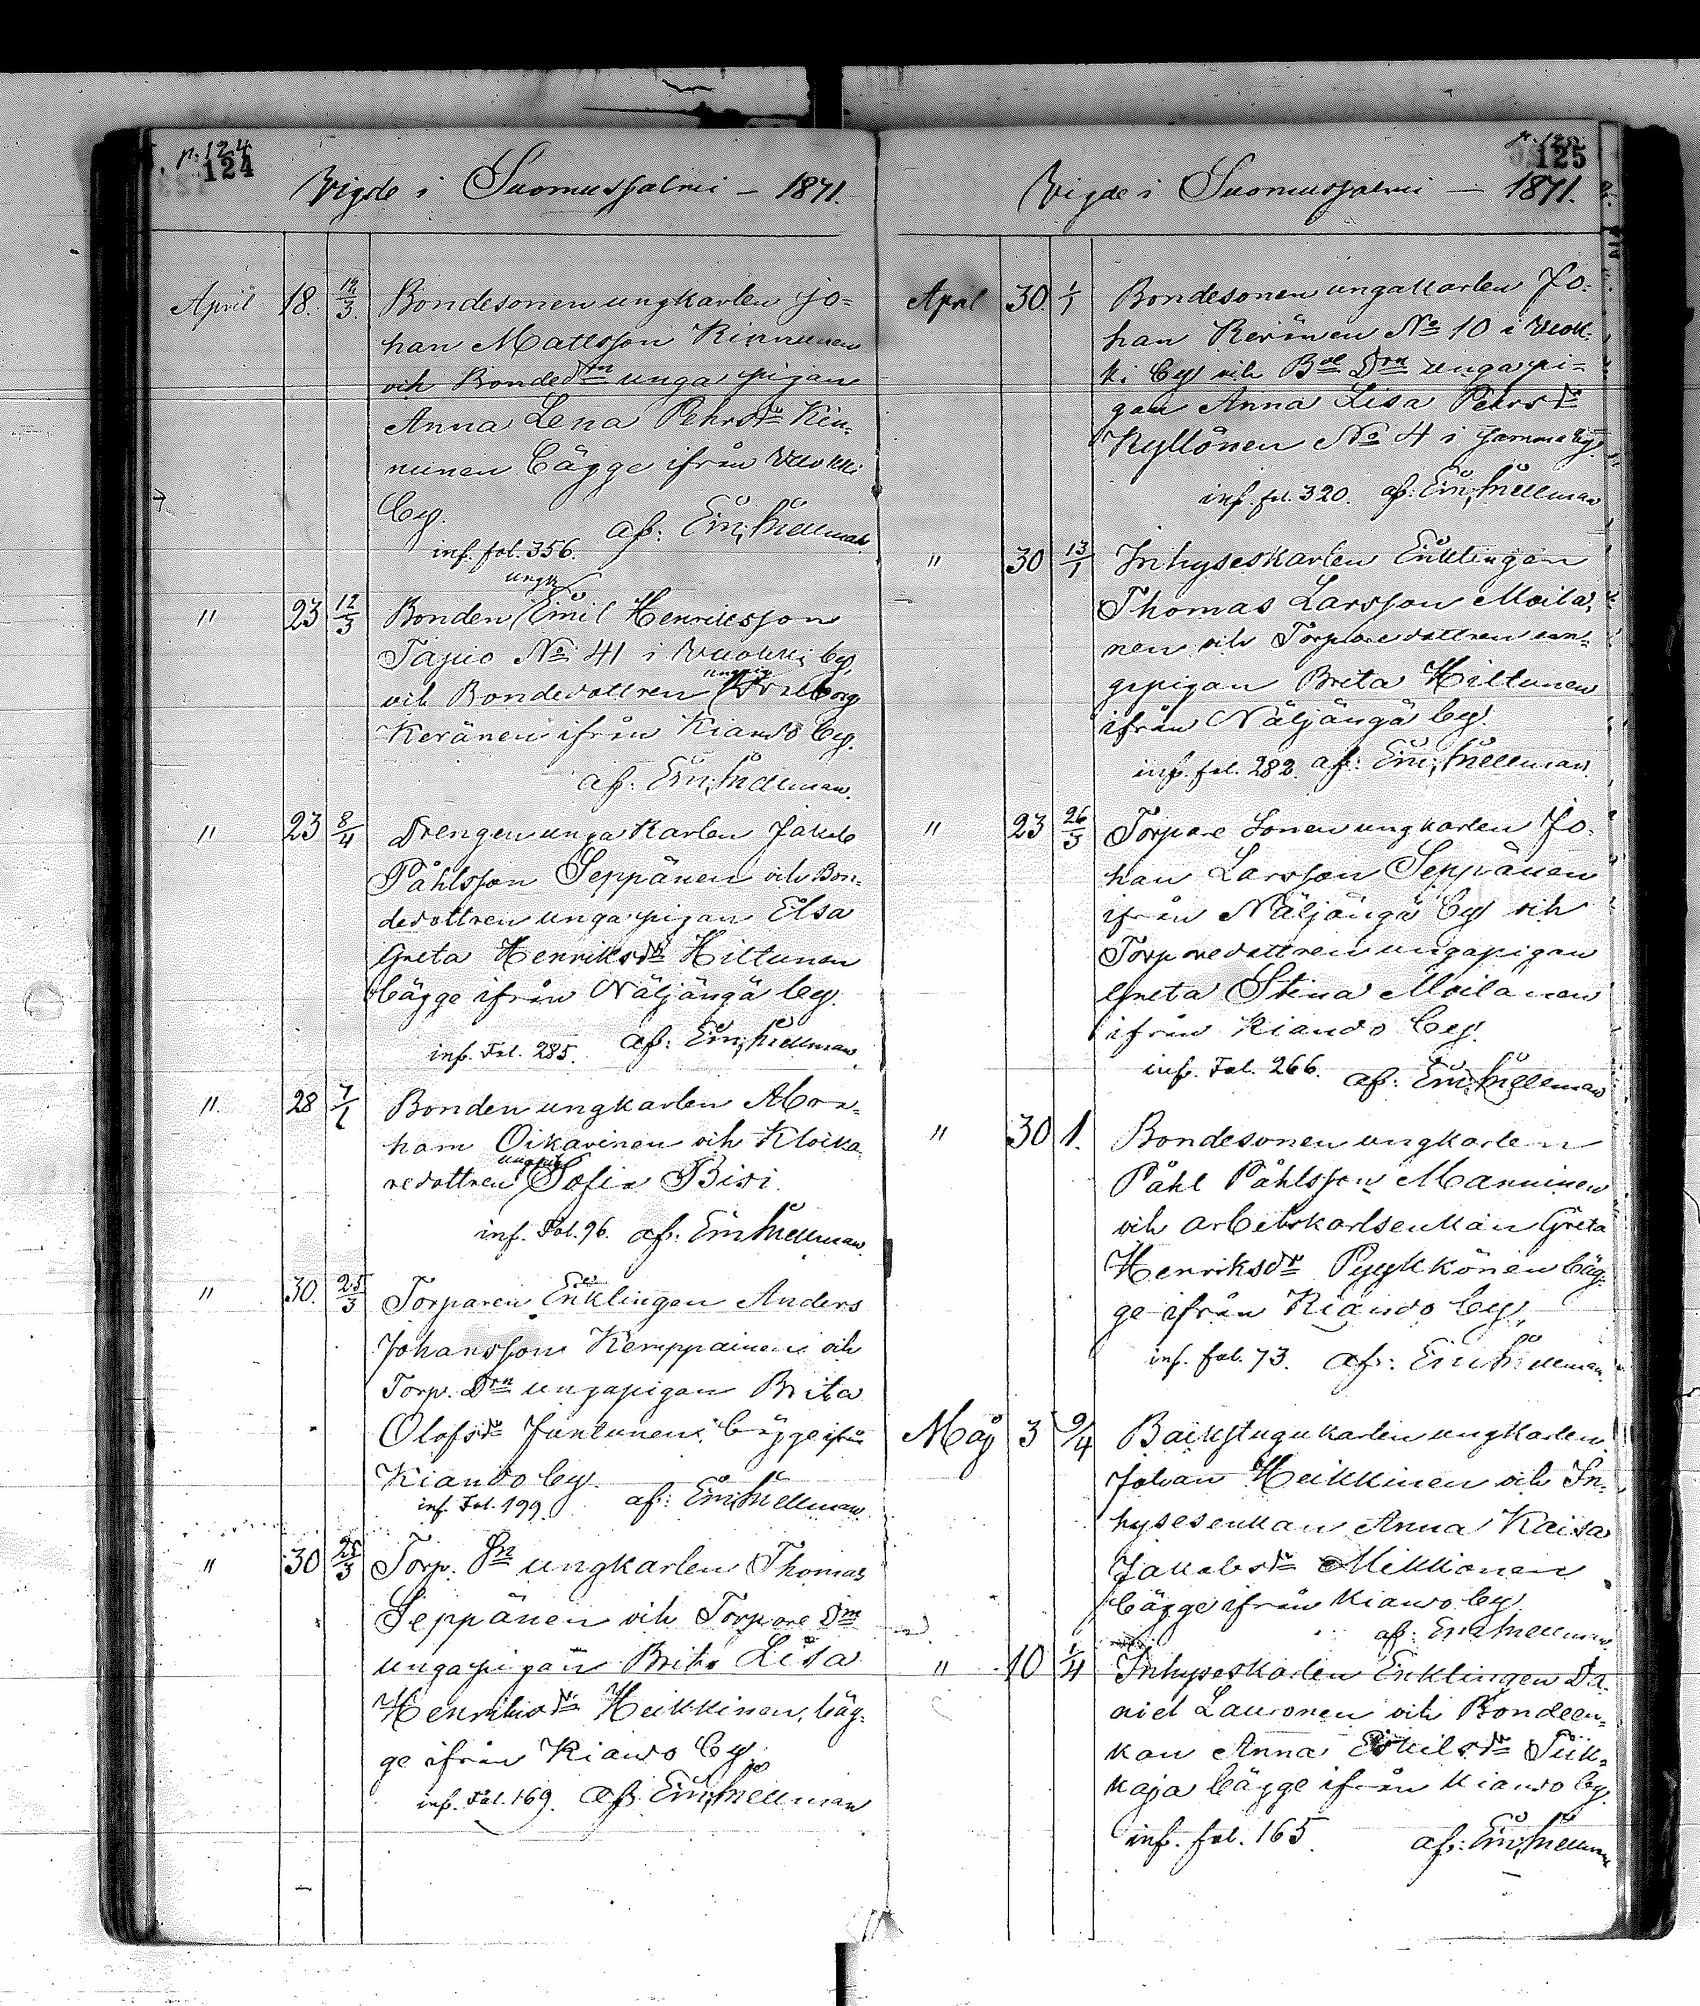 p. 124
124
Vigde i Suomussalmi – 1871.
April 18. 12/3. Bondesonen ungkarlen Jo=
han Mattsson Kinnunen
och Bonded:n unga pigan
Anna Lena Pehrsdr Kin-
nunen bägge ifrån Vuokki
by.
inf. fol. 356. af: Em: Snellman.
ungk
" 23 12/3 Bonden Emil Henriksson
Tapio No 41 i Vuokki by,
och Bondedottren
Keränen ifrån Kiando by.
af: Em: Snellman.
" 23 8/4 Drengen unga Karlen Jakob
Påhlsson Seppänen och Bon-
dedottren unga pigan Elsa
Greta Henriksdr Hiltunen
bägge ifrån Näljängä by.
inf. Fol. 285. af: Em: Snellman.
" 28 7/1 Bonden ungkarlen Abra-
ham Oikarinen och Klocka
redottren Sofia Bisi.
inf. Fol. 96. af: Em: Snellman.
" 30. 25/3 Torparen Enklingen Anders
Johansson Kemppainen och
Torp. Drn ungapigan Brita
Olofsdr Juntunen, bägge ifrån
Kiando by.
inf. Fol. 199. af: Em: Snellman.
" 30 25/3 Torp. Sn ungkarlen Thomas
Seppänen och Torpare Drn
ungapigan Brita Lisa
Henriksdr Heikkinen, bäg-
ge ifrån Kiando by.
inf. Fol. 169. af. Em: Snellman
125
Vigde i Suomussalmi – 1871.
April 30. 1/1 Bondesonen ungakarlen Jo-
han Keränen No 10 i Vuok-
ki by och Bde Drn unga pi=
gan Anna Lisa Pehrsdr
Kyllönen No 4 i samma by.
inf. fol. 320. af: Em: Snellman
" 30 13/1 Inhyseskarlen Enklingen
Thomas Larsson Moila-
nen och Torparedottren un-
gapigan Brita Hiltunen
ifrån Näljängä by.
inf. fol. 282. af: Em: Snellman.
" 23 26/3 Torpare Sonen ungkarlen Jo-
han Larsson Seppänen
ifrån Näljängä by och
Torparedottren ungapigan
Greta Stina Moilanen
ifrån Kiando by.
inf. Fol. 266. af: Em: Snellman
" 30 1. Bondesonen ungkarlen
Påhl Påhlsson Manninen
och arbetskarlsenkan Greta
Henriksdr Pyykkönen bäg-
ge ifrån Kiando by.
inf. fol. 73. af: Em: Snellman.
Maj 3 9/4 Backstugukarlen ungkarlen
Johan Heikkinen och In-
hysesenkan Anna Kaisa
Jakobsdr Mikkonen
bägge ifrån Kiando by
af: Em: Snellman
" 10 1/4 Inhyseskarlen Enklingen Da-
niel Lauronen och Bondeen-
kan Anna Eskilsdr Tiik-
kaja bägge ifrån Kiando by.
inf. fol. 165. af: Em: Snellman